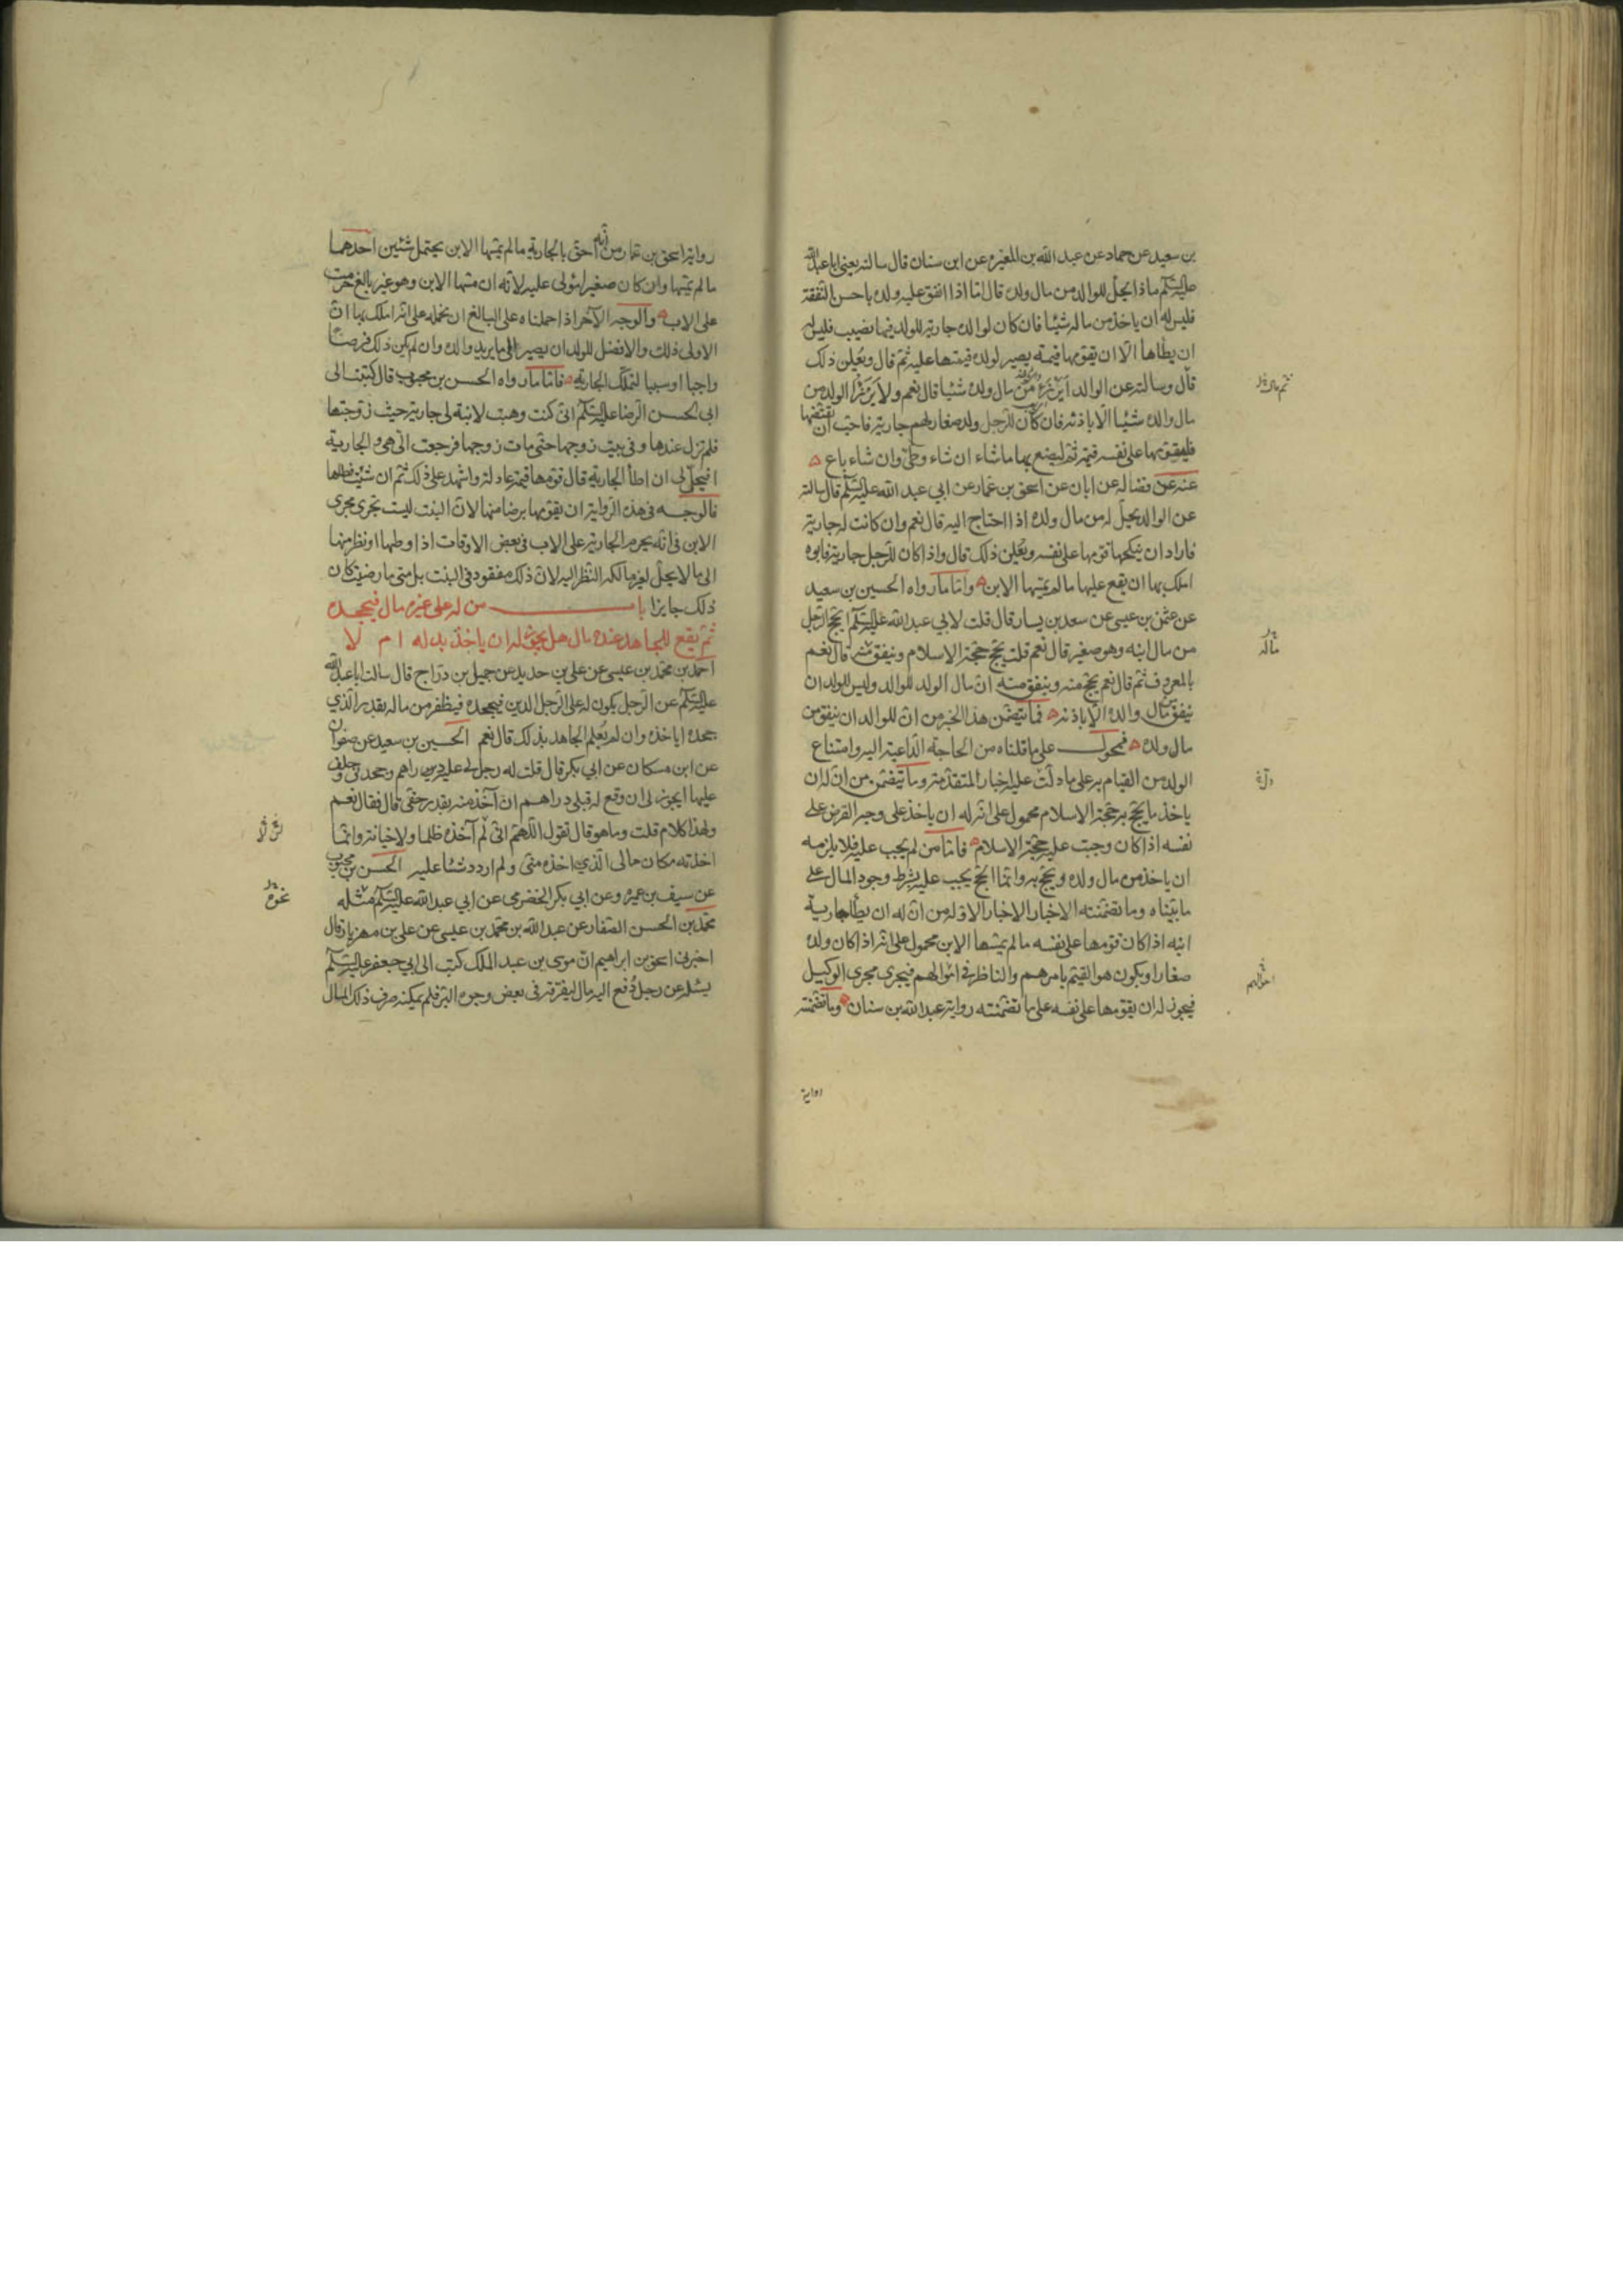 بن سعيد عن حماد عن عبد الله بن المغيرة عن ابن سنان قال سالته يعني ابا عبد الله
عليه السلم ماذا يحل للوالد من مال ولده قال اما اذا انفق عليه ولده باحسن النفقة
فليس له ان ياخذ من ماله شيئا فان كان لوالده جارية للولد فيها نصيب فليس له
ان يطأها الا ان يقومها قيمة يصير لولده قيمتها عليه ثم قال ويعلن ذلك
قال وسالته عن الوالد ايرزء من مال ولده شيئا قال نعم ولا يرزء الولد من
مال والده شيئا الا باذنه فان كان للرجل ولد صغار لهم جارية فاحب ان يقتضها
فليقومها على نفسه قيمة ثم ليصنع بها ما شاء ان شاء وطئ وان شاء باع
عنه عن فضالة عن ابان عن اسحق بن عمار عن ابي عبد الله عليه السلم قال سالته
عن الوالد يحل له من مال ولده اذا احتاج اليه قال نعم وان كانت له جارية
فاراد ان ينكحها قومها على نفسه ويعلن ذلك قال واذا كان للرجل جارية فابوه
املك بها ان يقع عليها ما لم يمسها الابن واما ما رواه الحسين بن سعيد
عن عثمن بن عيسى عن سعيد بن يسار قال قلت لابي عبد الله عليه السلم ايحج الرجل
من مال ابنه وهو صغير قال نعم قلت يحج حجة الاسلام وينفق منه قال نعم
بالمعروف ثم قال نعم يحج منه وينفق منه ان مال الولد للوالد وليس للولد ان
ينفق من مال والده الا باذنه فما تضمن هذا الخبر من ان للوالد ان ينفق من
مال ولده فمحمول على ما قلناه من الحاجة الداعية اليه وامتناع
الولد من القيام به على ما دلت عليه الاخبار المتقدمة وما تضمن من ان له ان
ياخذ ما يحج به حجة الاسلام محمول على انه له ان ياخذ على وجه القرض على
نفسه اذا كان وجبت عليه حجة الاسلام فاما من لم يجب عليه فلا يلزمه
ان ياخذ من مال ولده ويحج به وانما الحج يجب عليه بشرط وجود المال على
ما بيناه وما تضمنته الاخبار الاخبار الاوله من ان له ان يطأ جارية
ابنه اذا كان قومها على نفسه ما لم يمسها الابن محمول على انه اذا كان ولده
صغارا ويكون هو القيم بامرهم والناظر في اموالهم فيجري مجرى الوكيل
فيجوز له ان يقومها على نفسه على ما تضمنته رواية عبد الله بن سنان وما تضمنته
ماله
رواية اسحق بن عمار من انه احق بالجارية ما لم يمسها الابن يحتمل شيئين احدهما
ما لم يمسها وان كان صغيرا يولى عليه لانه ان مسها الابن وهو غير بالغ حرمت
على الاب والوجه الاخر اذا حملناه على البالغ ان نحمله على انه املك بها ان
الاولى ذلك والافضل للولد ان يصير الى ما يريد والده وان لم يكن ذلك فرضا
واجبا او سببا لتملك الجارية فاما ما رواه الحسن بن محبوب قال كتبت الى
ابي الحسن الرضا عليه السلم اني كنت وهبت لابنة لي جارية حيث زوجتها
فلم تزل عندها وفي بيت زوجها حتى مات زوجها فرجعت الي هي والجارية
افيحل لي ان اطأ الجارية قال قومها قيمة عادلة واشهد على ذلك ثم ان شئت فطأها
فالوجه في هذه الرواية ان يقومها برضا منها لان البنت ليست تجري مجرى
الابن في انه يحرم الجارية على الاب في بعض الاوقات اذا وطئها او نظر منها
الى ما لا يحل لغير مالكه النظر اليه لان ذلك مفقود في البنت بل متى ما رضيت كان
ذلك جايزا باب من له على غيره مال فيجحده
ثم يقع للجاحد عنده مال هل يجوز له ان ياخذ بدله ام لا
احمد بن محمد بن عيسى عن علي بن حديد عن جميل بن دراج قال سالت ابا عبد الله
عليه السلم عن الرجل يكون له على الرجل الدين فيجحده فيظفر من ماله بقدر الذي
جحده اياخذه وان لم يعلم الجاحد بذلك قال نعم الحسين بن سعيد عن صفوان
عن ابن مسكان عن ابي بكر قال قلت له رجل لي عليه دراهم وجحدني وحلف
عليها ايجوز لي ان وقع له قبلي دراهم ان آخذ منه بقدر حقي قال فقال نعم
ولهذا كلام قلت وما هو قال تقول اللهم اني لم آخذه ظلما ولا خيانة وانما
اخذته مكان مالي الذي اخذه مني ولم ازدد شيئا عليه الحسن بن محبوب
عن سيف بن عميرة وعن ابي بكر الحضرمي عن ابي عبد الله عليه السلم مثله
محمد بن الحسن الصفار عن عبد الله بن محمد بن عيسى عن علي بن مهزيار قال
اخبرني اسحق بن ابراهيم ان موسى بن عبد الملك كتب الى ابي جعفر عليه السلم
يسئله عن رجل دفع اليه مال ليفرقه في بعض وجوه البر فلم يمكنه صرف ذلك المال
نحوه